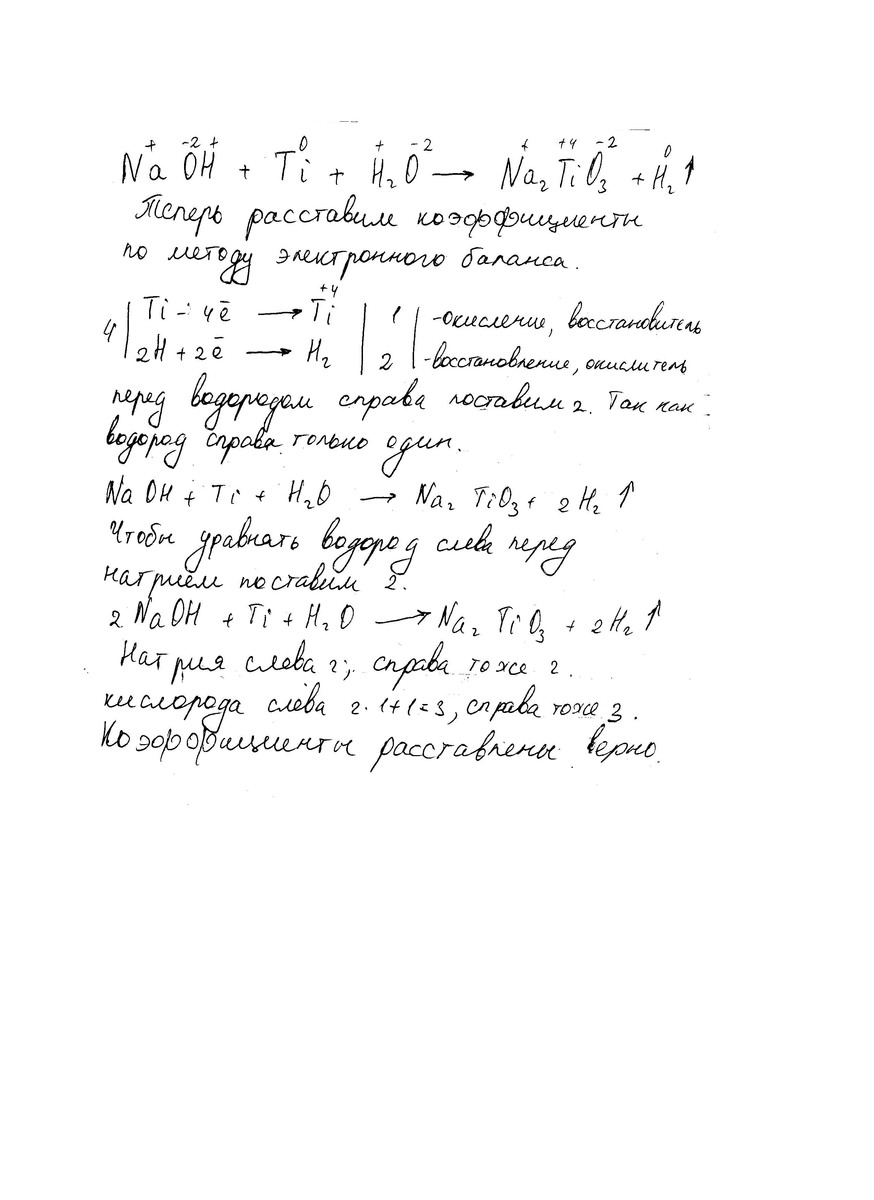 + -2 + 0 + -2 + +4 -2 0
NaOH + Ti + H₂O → Na₂TiO₃ + H₂↑
Теперь расставим коэффициенты
по методу электронного баланса.
4 | Ti - 4ē → Ti⁺⁴ | 1 | -окисление, восстановитель
2H + 2ē → H₂ | 2 | -восстановление, окислитель
перед водородом справа поставим 2. Так как
водород справа только один.
NaOH + Ti + H₂O → Na₂TiO₃ + 2H₂↑
Чтобы уравнять водород слева перед
натрием поставим 2.
2NaOH + Ti + H₂O → Na₂TiO₃ + 2H₂↑
Натрия слева 2; справа тоже 2.
кислорода слева 2·1+1=3, справа тоже 3.
Коэффициенты расставлены верно.